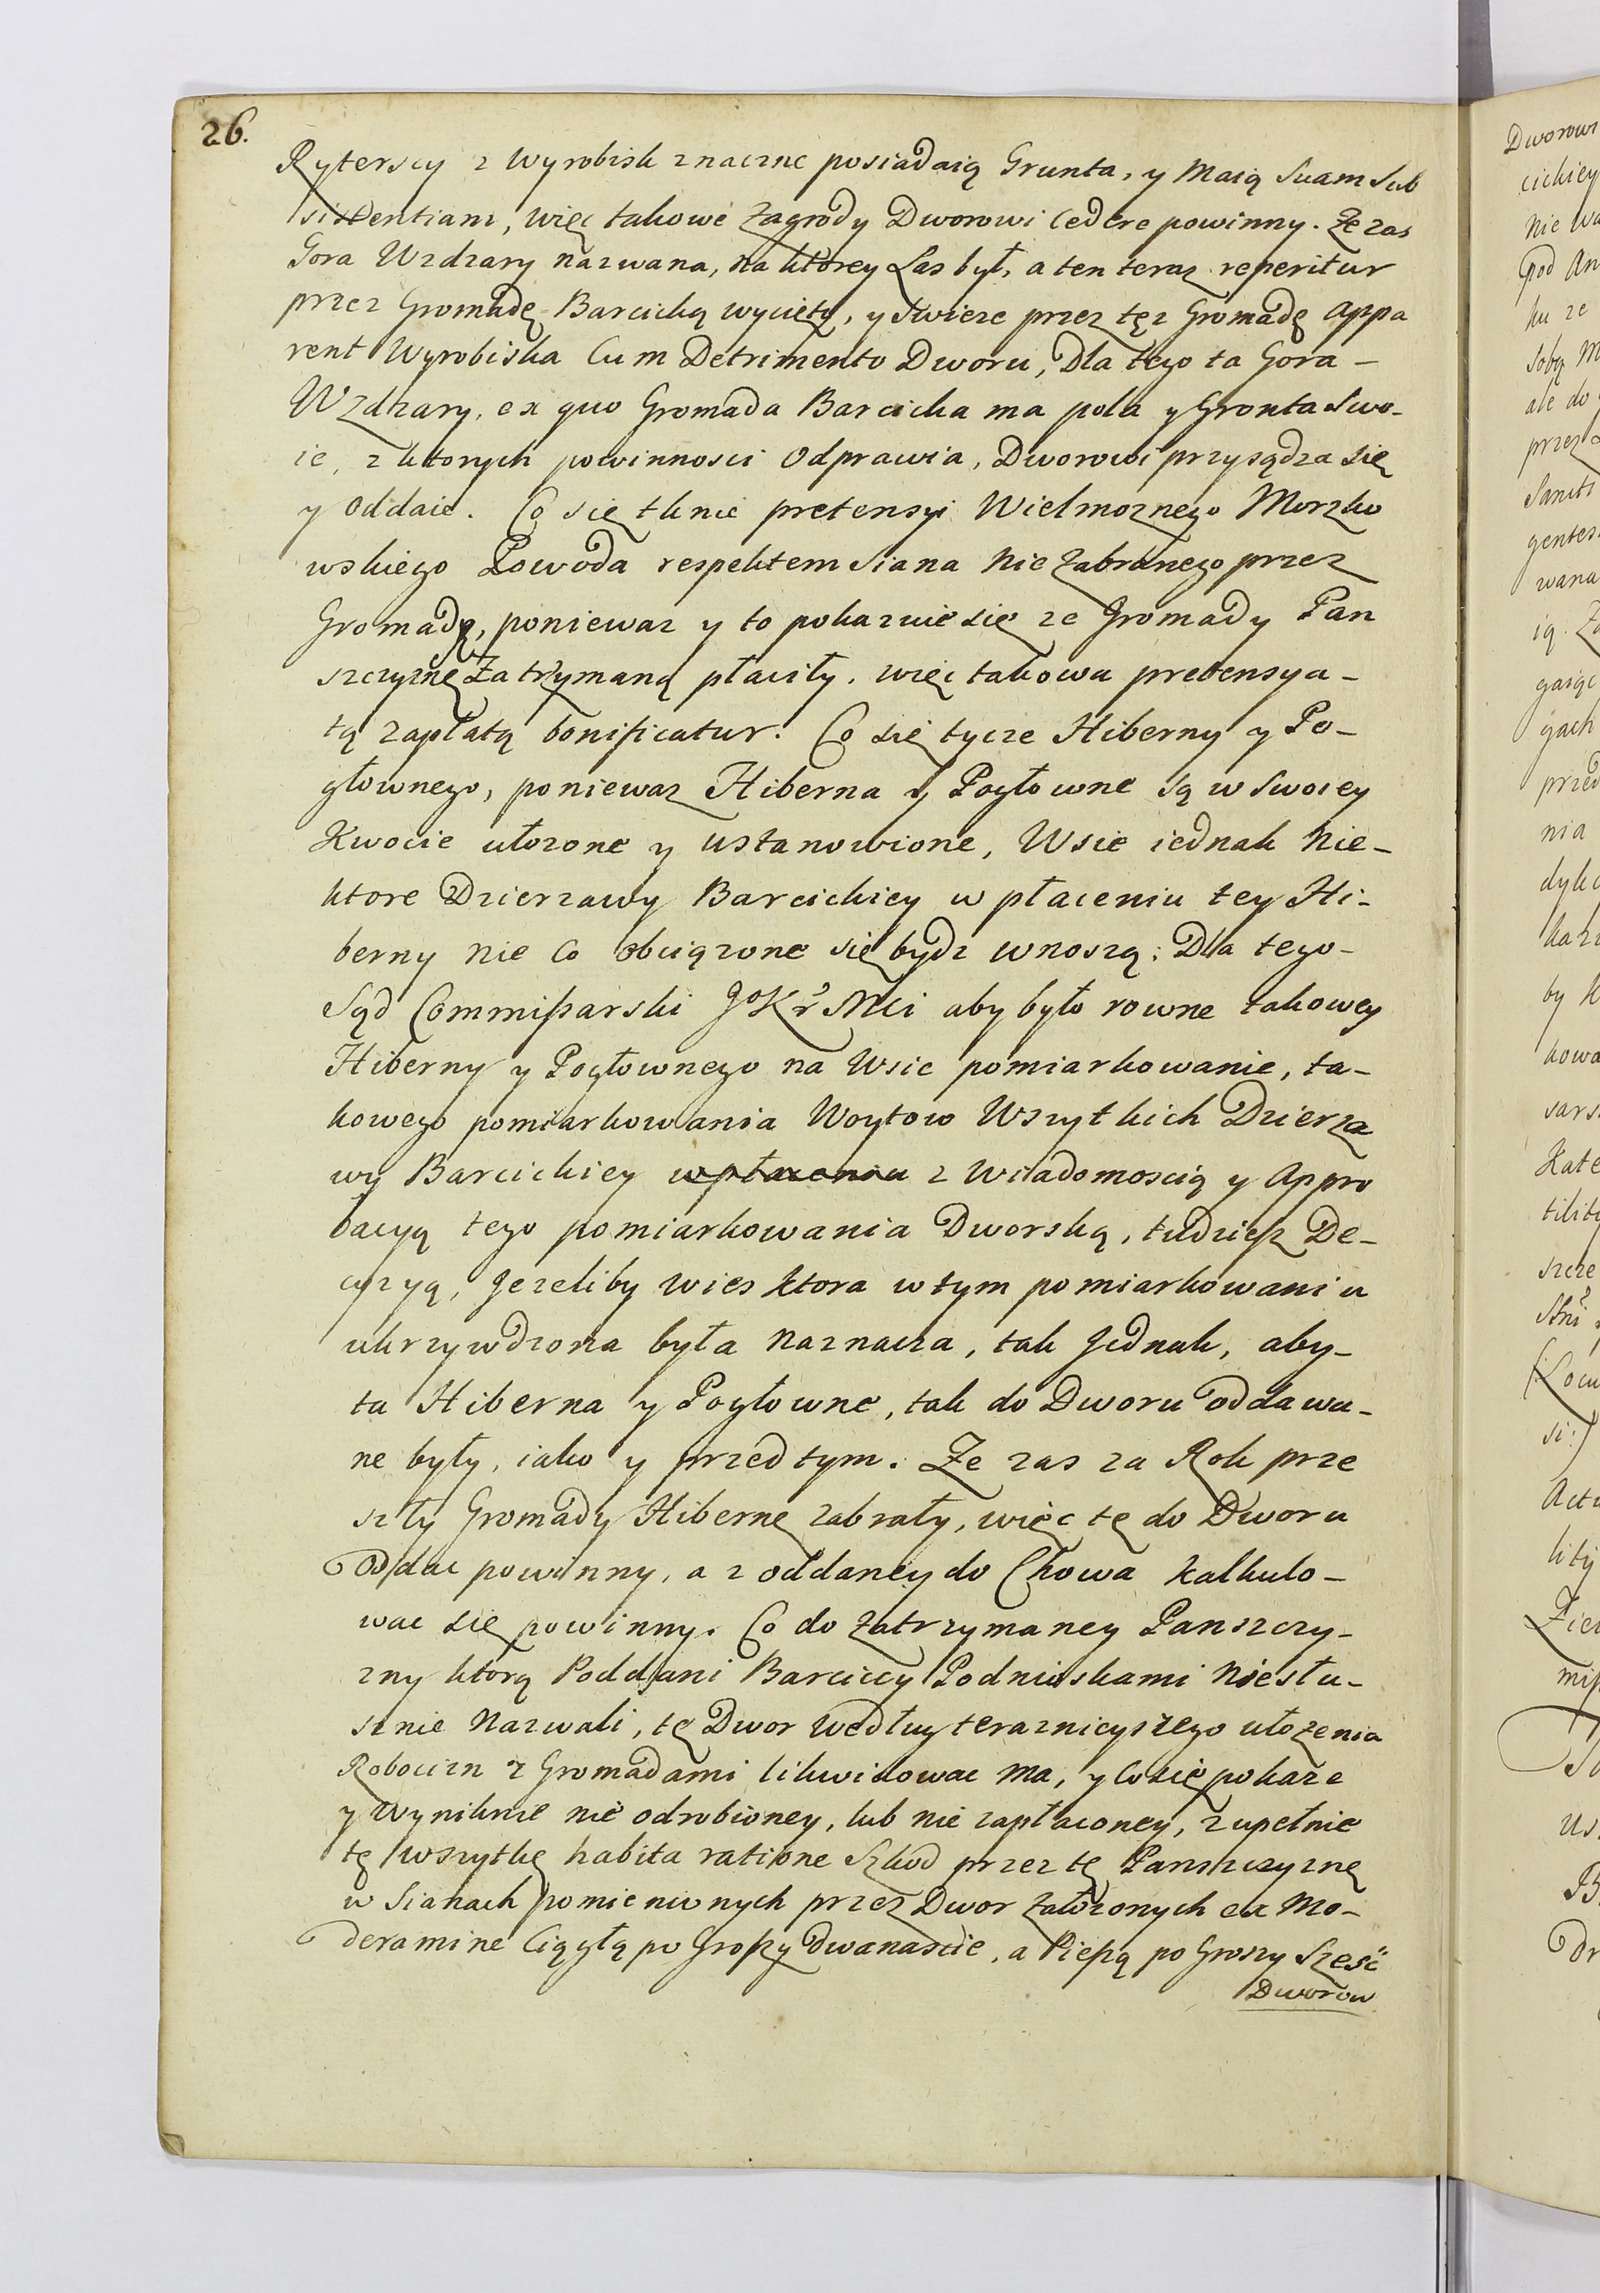 26.
Ryterscy z wyrobisk znaczne posiadaią Grunta, y Maią Suam Sub
sistentiam, więc takowe Zagrody Dworowi Cedere powinny. Ze zas
Gora Wzdzary nazwana, na ktorey Las był, a ten teraz reperitur
przez Gromadę Barcicką wycięty, y swieze przez tęz Gromadę appa
rent Wyrobiska Cum Detrimento Dworu, Dla tego ta Gora –
Wzdzary, ex quo Gromada Barcicka ma pola y Gronta Swo-
ie, z ktorych powinnosci odprawia, Dworowi przysądza się
y oddaie. Co się tknie pretensyi Wielmoznego Morzko
wskiego Powoda respektem Siana nie zabranego przez
Gromadę, poniewaz y to pokazuie się ze Gromady Pan
szczyznę Zatrzymaną płaciły, więc takowa pretensya –
tą zapłatą bonificatur. Co się tycze Hiberny y Po-
głownego, poniewaz Hiberna y Pogłowne są w swoiey
Kwocie ułozone y ustanowione, Wsie iednak Nie-
ktore Dzierzawy Barcickiey w płaceniu tey Hi-
berny nie co obciązone się bydz wnoszą; Dla tego –
Sąd Commißarski JoKr Mci aby było rowne takowey
Hiberny y Pogłownego na Wsie pomiarkowanie, ta-
kowego pomiarkowania Woytow Wszytkich Dzierza
wy Barcickiey wpłaceniu z Wiadomoscią y Appro
bacyą tego pomiarkowania Dworską, tudzieß De-
cyzyą, Jezeliby wies ktora w tym pomiarkowaniu
ukrzywdzona była naznacza, tak Jednak, aby –
ta Hiberna y Pogłowne, tak do Dworu oddawa-
ne były, iako y przed tym. Ze zas za Rok prze
szły Gromady Hibernę zabrały, więc tę do Dworu
Oddac powinny, a z oddaney do Chowa kalkulo-
wac się powinny. Co do zatrzymaney Panszczy-
zny ktorą Poddani Barciccy Podniuskami niesłu-
sznie Nazwali, tę Dwor według teraznieyszego ułozenia
Robocizn z Gromadami likwidowac ma, y co się pokaze
y wyniknie nie odrobioney, lub nie zapłaconey, zupełnie
tę wszytkę habita ratione Szkod przez tę Panszczyznę
w Sianach pomienionych przez Dwor załozonych ex Mo-
deramine Ciągłą po Großy dwanascie, a Pießą po Groszy Szesć
Dworow